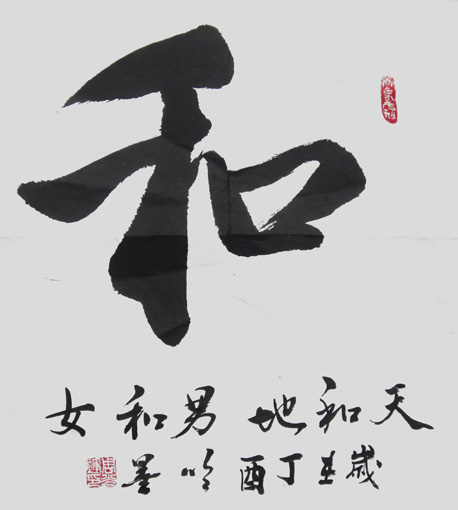 和
天和地男和女
歲在丁酉吟墨